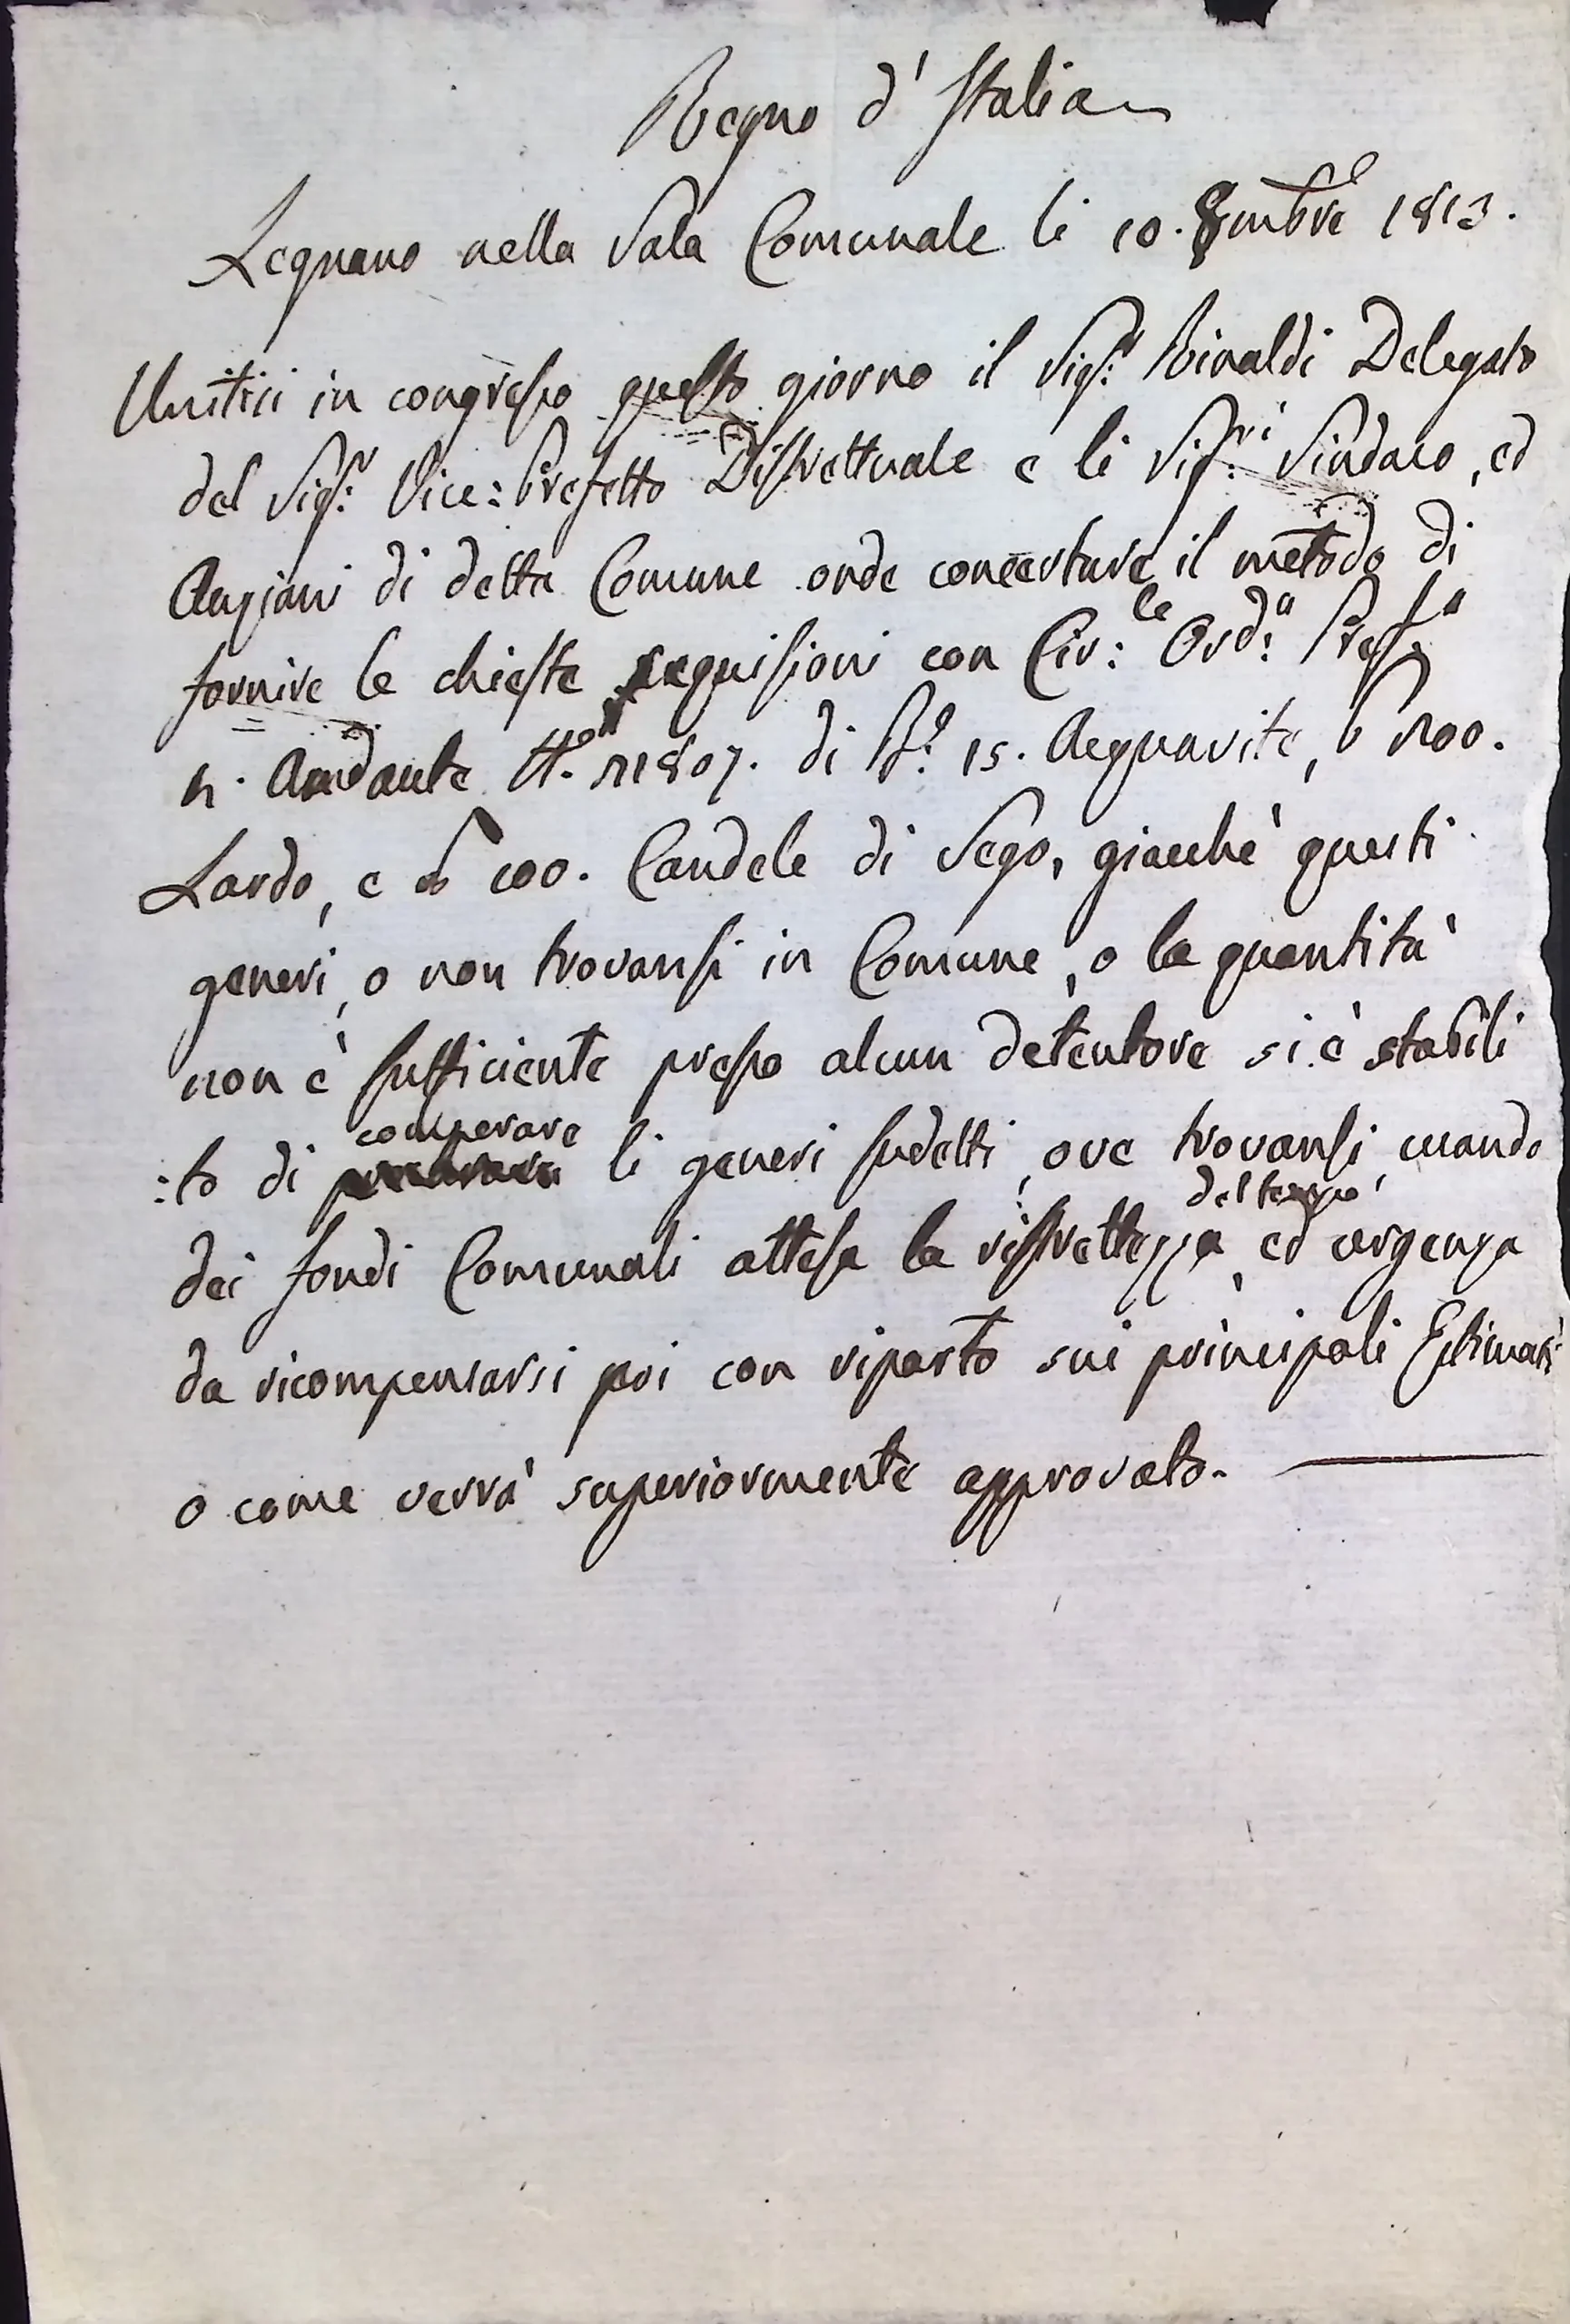 Regno d'Italia
Legnano nella Sala Comunale li 10. 8mbre 1813.
Unitisi in congresso questo giorno il Sigr. Rinaldi Delegato
del Sigr. Vice: Prefetto Distrettuale e li Sigri. Sindaco, ed
Anziani di detta Comune onde concertare il metodo di
fornire le chieste requisizioni con Cir:le Ord:a Prefa
n. Andante N. 21807. di 15. Acquavite, 200.
Lardo, e 100. Candele di Sego, giacchè questi
generi, o non trovansi in Comune, o la quantità
non è sufficiente presso alcun detentore si è stabili
:to di comperare li generi sudetti, ove trovansi, usando
dei fondi Comunali attesa la ristrettezza del tempo, ed urgenza
da ricompensarsi poi con riparto sui principali Estimati
o come verrà superiormente approvato.